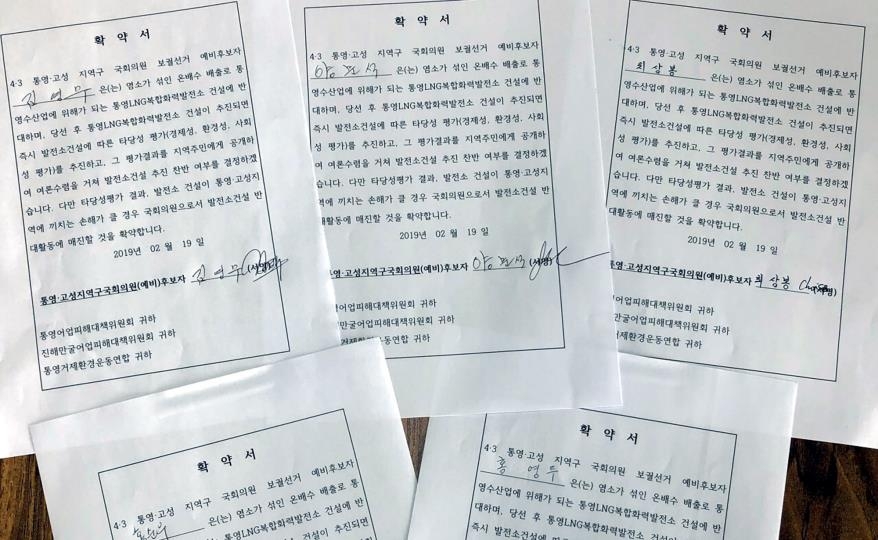 확 약 서
4·3 통영·고성 지역구 국회의원 보궐선거 예비후보자
김영무 은(는) 염소가 섞인 온배수 배출로 통
영수산업에 위해가 되는 통영LNG복합화력발전소 건설에 반
대하며, 당선 후 통영LNG복합화력발전소 건설이 추진되면
즉시 발전소건설에 따른 타당성 평가(경제성, 환경성, 사회
성 평가)를 추진하고, 그 평가결과를 지역주민에게 공개하
여 여론수렴을 거쳐 발전소건설 추진 찬반 여부를 결정하겠
습니다. 다만 타당성평가 결과, 발전소 건설이 통영·고성지
역에 끼치는 손해가 클 경우 국회의원으로서 발전소건설 반
대활동에 매진할 것을 확약합니다.
2019년 02 월 19 일
통영·고성지역구국회의원(예비)후보자 김영무
통영어업피해대책위원회 귀하
진해만굴어업피해대책위원회 귀하
통영거제환경운동연합 귀하
확 약 서
4·3 통영·고성 지역구 국회의원 보궐선거 예비후보자
양문석 은(는) 염소가 섞인 온배수 배출로 통
영수산업에 위해가 되는 통영LNG복합화력발전소 건설에 반
대하며, 당선 후 통영LNG복합화력발전소 건설이 추진되면
즉시 발전소건설에 따른 타당성 평가(경제성, 환경성, 사회
성 평가)를 추진하고, 그 평가결과를 지역주민에게 공개하
여 여론수렴을 거쳐 발전소건설 추진 찬반 여부를 결정하겠
습니다. 다만 타당성평가 결과, 발전소 건설이 통영·고성지
역에 끼치는 손해가 클 경우 국회의원으로서 발전소건설 반
대활동에 매진할 것을 확약합니다.
2019년 02 월 19 일
통영·고성지역구국회의원(예비)후보자 양문석
통영어업피해대책위원회 귀하
만굴어업피해대책위원회 귀하
거제환경운동연합 귀하
확 약 서
4·3 통영·고성 지역구 국회의원 보궐선거 예비후보자
최상봉 은(는) 염소가 섞인 온배수 배출로 통
영수산업에 위해가 되는 통영LNG복합화력발전소 건설에 반
대하며, 당선 후 통영LNG복합화력발전소 건설이 추진되면
즉시 발전소건설에 따른 타당성 평가(경제성, 환경성, 사회
성 평가)를 추진하고, 그 평가결과를 지역주민에게 공개하
여 여론수렴을 거쳐 발전소건설 추진 찬반 여부를 결정하겠
습니다. 다만 타당성평가 결과, 발전소 건설이 통영·고성지
역에 끼치는 손해가 클 경우 국회의원으로서 발전소건설 반
대활동에 매진할 것을 확약합니다.
2019년 02 월 19 일
통영·고성지역구국회의원(예비)후보자 최상봉
어업피해대책위원회 귀하
만굴어업피해대책위원회 귀하
거제환경운동연합 귀하
확 약 서
4·3 통영·고성 지역구 국회의원 보궐선거 예비후보자
은(는) 염소가 섞인 온배수 배출로 통
영수산업에 위해가 되는 통영LNG복합화력발전소 건설에 반
대하며, 당선 후 통영LNG복합화력발전소 건설이 추진되면
확 약 서
4·3 통영·고성 지역구 국회의원 보궐선거 예비후보자
홍영두 은(는) 염소가 섞인 온배수 배출로 통
영수산업에 위해가 되는 통영LNG복합화력발전소 건설에 반
대하며, 당선 후 통영LNG복합화력발전소 건설이 추진되면
즉시 발전소건설에